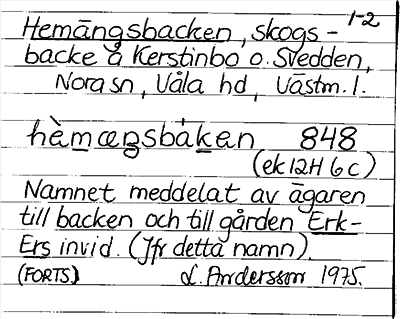 1-2
Hemängsbacken, skogs-
backe å Kerstinbo o. Svedden,
Nora sn, Våla hd, Västm. l.
hèmæŋsbàkən 848
(ek 12H 6c)
Namnet meddelat av ägaren
till backen och till gården Erk-
Ers invid. (Jfr detta namn).
(FORTS.) L. Andersson 1975.